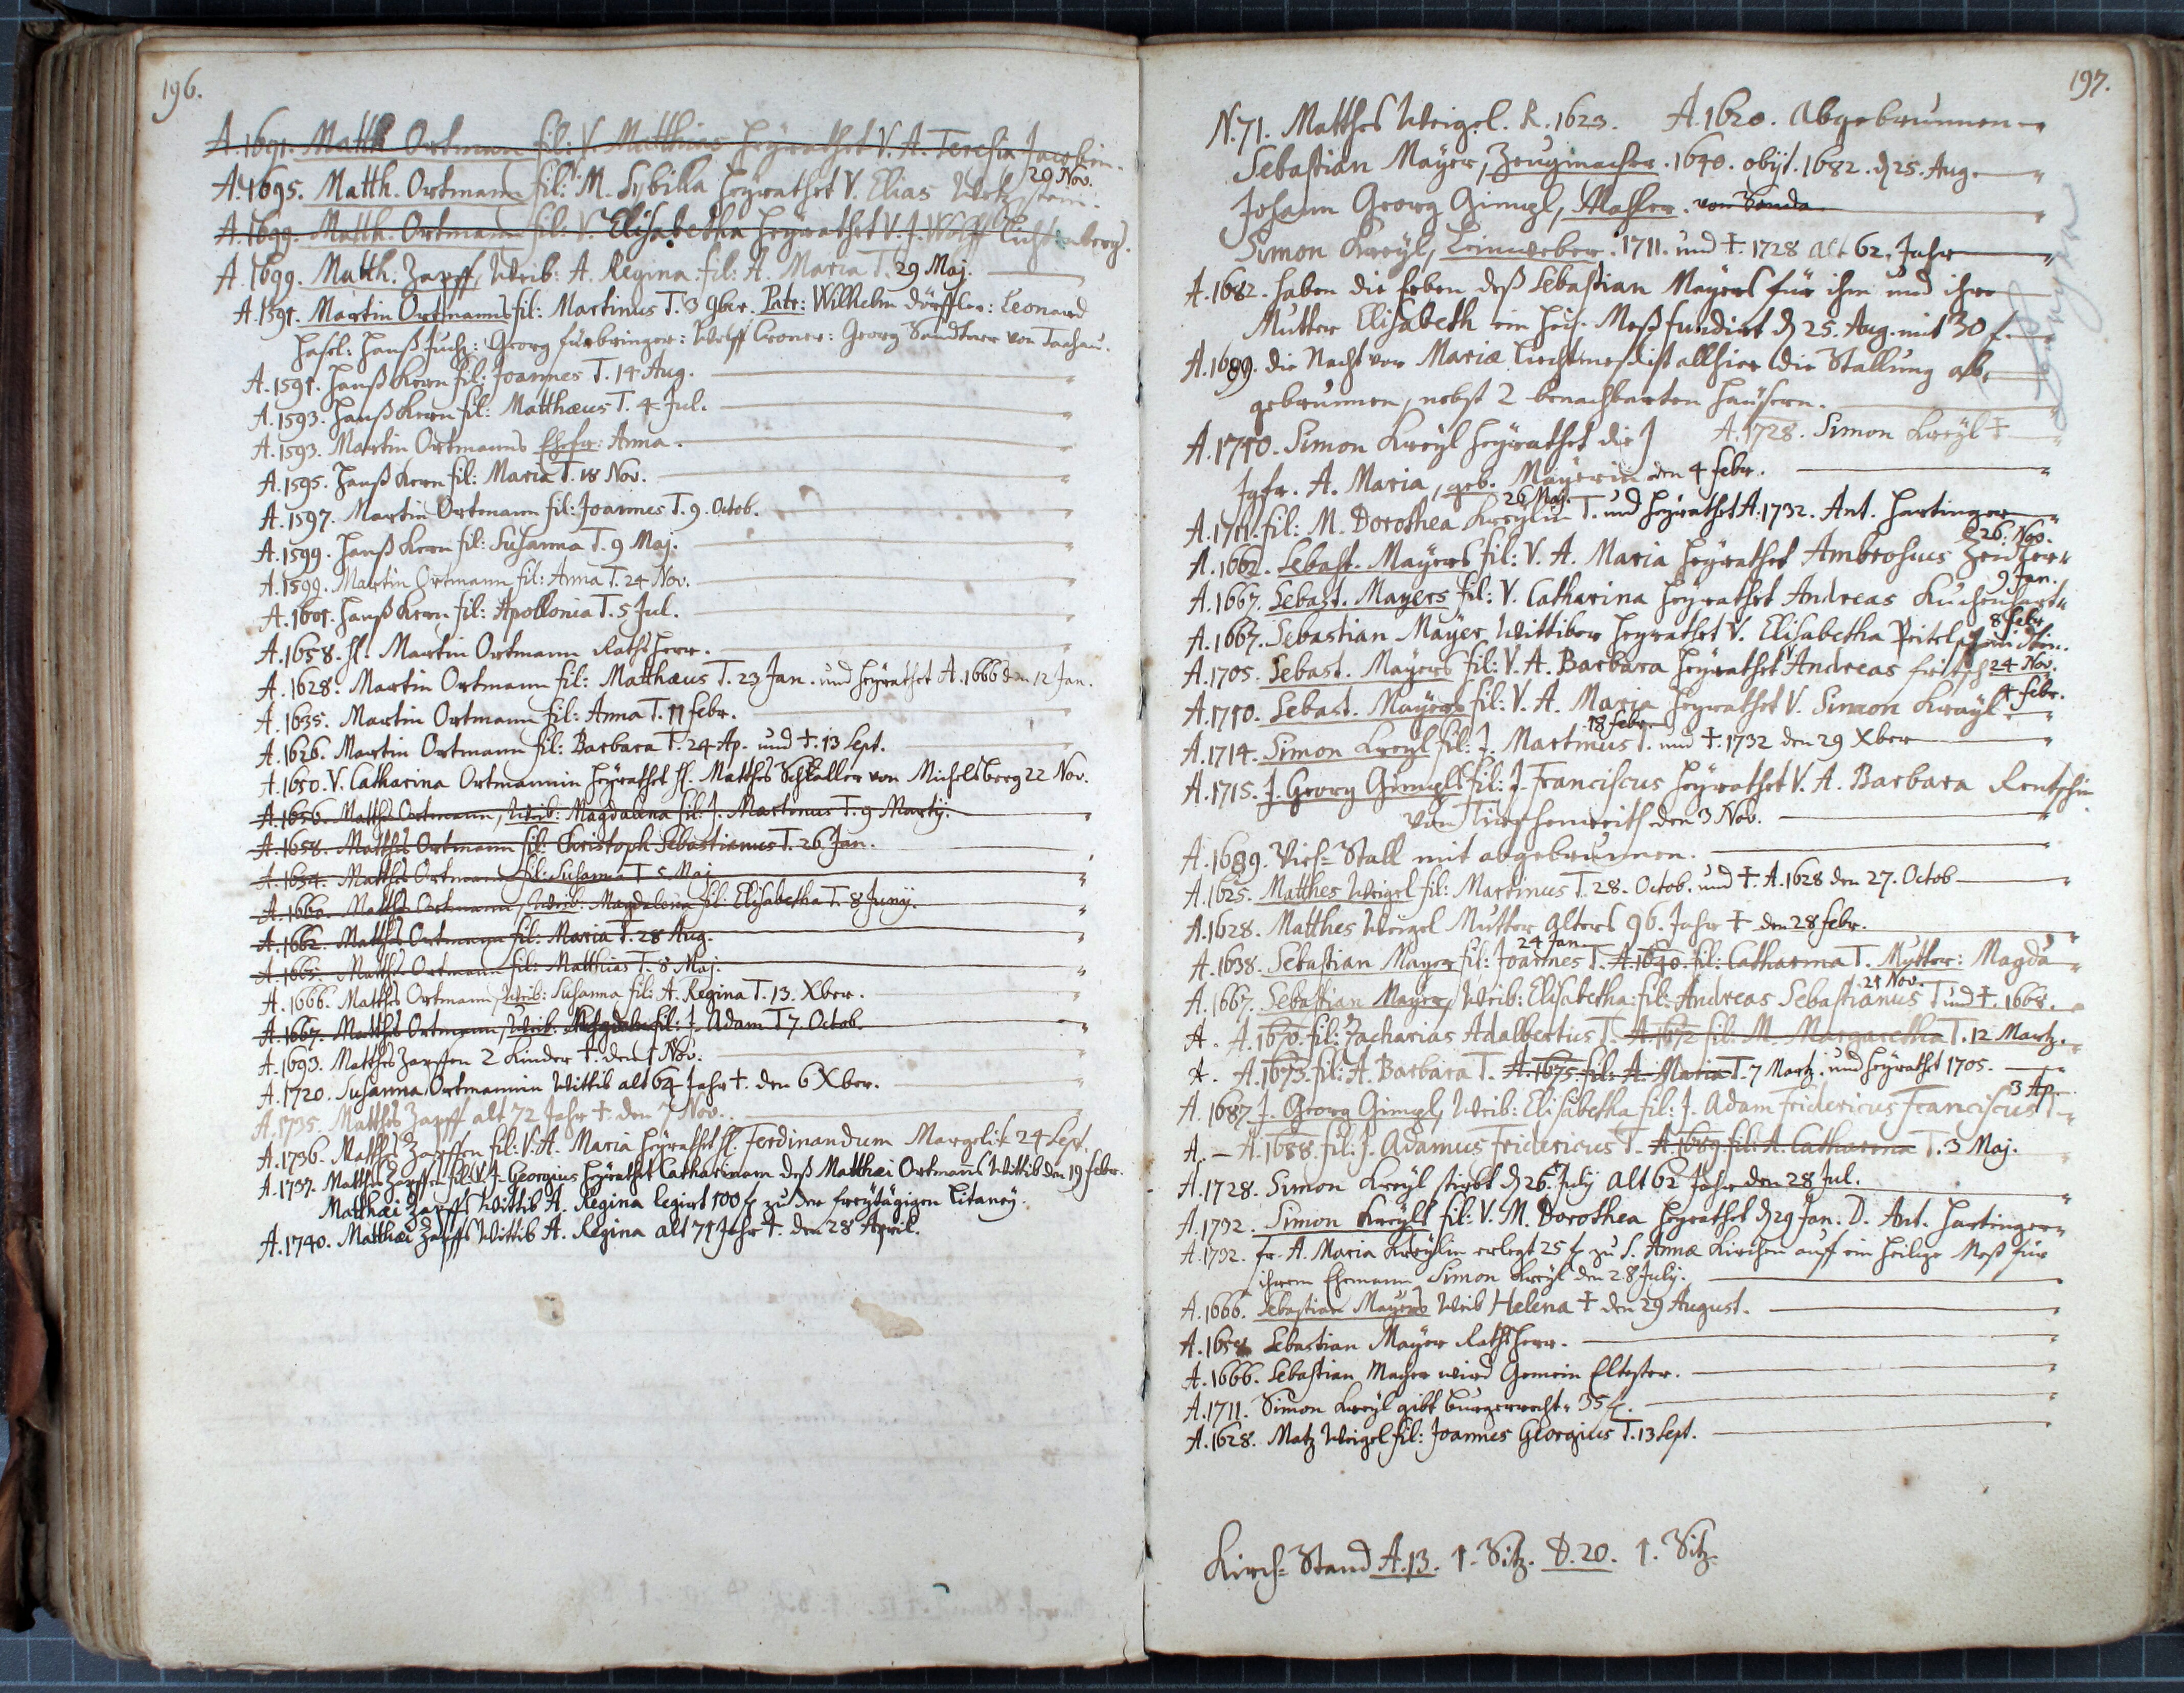 196.
A. 1691. Matth Ortman fil: V. Matthias heÿrathet V. A. Teresia Jacobin.
A. 1695. Matth. Ortmann fil: M. Sybilla heÿrathet V. Elias 29 Nov.
A. 1699. Matth. Ortmann fil: V. Elisabetha heÿrathet V. J. Wolff Lichtenberg.
A. 1699. Matth: Zapff, Weib: A. Regina fil: A. Maria T. 29 Maj.
A. 1591. Martin Ortmanns fil: Martinus T. 3 9ber. Patr: Wilhelm Dörffler: Leonard
Hasel: Hanß Fuchs: Georg Fürbringer: Wolff Croner: Georg Sandtner von Tachau.
A. 1591. Hanß Kern fil: Joannes T. 14 Aug.
A. 1593. Hanß Kern fil: Matthæus T. 4 Jul.
A. 1593. Martin Ortmanns Ehefr: Anna.
A. 1595. Hanß Kern fil: Maria T. 18 Nov.
A. 1597. Martin Ortmann fil: Joannes T. 9. Octob.
A. 1599. Hanß Kern fil: Susanna T. 9 Maj.
A. 1599. Martin Ortmann fil: Anna T. 24 Nov.
A. 1601. Hanß Kern fil: Apollonia T. 5 Jul.
A. 1658. H. Martin Ortmann Rathsherr.
A. 1628. Martin Ortmann fil: Matthæus T. 23 Jan. und heÿrathet A. 1666 den 12 Jan.
A. 1635. Martin Ortmann fil: Anna T. 11 febr.
A. 1626. Martin Ortmann fil: Barbara T. 24 Ap. und †. 13 Sept.
A. 1650. V. Catharina Ortmannin heÿrathet H. Matthes Schkaller von Michelsberg 22 Nov.
A. 1656. Matthes Ortmann, Weib: Magdalena fil: J. Martinus T. 9 Martij.
A. 1658. Matthes Ortmann fil: Christoph Sebastianus T. 26 Jan.
A. 1654. Matthes Ortmann fil: Susanna T. 5 Maj.
A. 1660. Matthes Ortmann, Weib: Magdalena fil: Elisabetha T. 8 Junÿ.
A. 1662. Matthes Ortmann fil: Maria T. 28 Aug.
A. 1665. Matthes Ortmann fil: Matthias T. 8 Maj.
A. 1666. Matthes Ortmann, Weib: Susanna fil: A. Regina T. 13. Xber.
A. 1667. Matthes Ortmann, Weib: Magdalena fil: J. Adam T 7. Octob.
A. 1693. Matthes Zapffen 2 Kinder †. den 1 Nov.
A. 1720. Susanna Ortmannin Wittib alt 64 Jahr †. den 6 Xber.
A. 1735. Matthes Zapff alt 72 Jahr †. den 7 Nov.
A. 1736. Matthes Zapffen fil: V. A. Maria heÿrathet H. Ferdinandum Margelik 24 Sept.
A. 1737. Matthes Zapffen fil: V. J. Georgius heÿrathet Catharinam deß Matthæi Ortmans Wittib den 19 febr.
Matthæi Zapffs Wittib A. Regina legirt 100 f zu der freÿtägigen Litaneÿ.
A. 1740. Matthæi Zapffs Wittib A. Regina alt 71 Jahr †. den 28 April.
197.
N. 71. Matthes Weigel. R. 1623. A. 1620. Abgebrunnen
Sebastian Mayer, Zeugmacher. 1640. obijt. 1682. d 25. Aug.
Johann Georg Gimpl, Mahler. von Sanda
Simon Kreÿl, Leinweber. 1711. und †. 1728 alt 62. Jahr
A. 1682. haben die Erben deß Sebastian Mayers für ihm und ihre
Mutter Elisabeth ein heil. Meß fundirt d 25. Aug. mit 30 f.
A. 1689. die Nacht vor Mariæ Liechtmeß ist allhier die Stallung ab,
gebrunnen, nebst 2 benachbarten Häusern.
A. 1710. Simon Kreÿl heÿrathet die A. 1728. Simon Kreÿl †
Jgfr. A. Maria, geb. Mayerin den 4 febr.
A. 1711. fil: M. Dorothea Kreÿlin 26 Maj. T. und heÿrathet A. 1732. Ant. Hartinger
A. 1662. Sebast. Mayers fil: V. A. Maria heÿrathet Ambrosius Zeidler 26. Nov.
A. 1667. Sebast. Mayers fil: V. Catharina heÿrathet Andreas Kuchenhart 9 Jan.
A. 1667. Sebastian Mayer Wittiber heÿrathet V. Elisabetha 8 febr.
A. 1705. Sebast. Mayers fil: V. A. Barbara heÿrathet Andreas Fritsch 24 Nov.
A. 1710. Sebast. Mayers fil: V. A. Maria heÿrathet V. Simon Kraÿl 4 febr.
A. 1714. Simon Kreÿl fil: J. Martinus 18 febr. T. und †. 1732 den 29 Xber
A. 1715. J. Georg Gimpls fil: J. Franciscus heÿrathet V. A. Barbara Rentschin
von Türschenreith den 3 Nov.
A. 1689. Vieh=Stall mit abgebrunnen.
A. 1625. Matthes Weigel fil: Martinus T. 28. Octob. und †. A. 1628 den 27. Octob
A. 1628. Matthes Weigel Mutter alters 96. Jahr † den 28 febr.
A. 1638. Sebastian Mayer fil: Joannes 24 Jan. T. A. 1640. fil: Catharina T. Mutter: Magda
A. 1667. Sebastian Mayer, Weib: Elisabetha: fil: Andreas Sebastianus 29 Nov. T und †. 1668.
A. A. 1670. fil: Zacharias Adalbertus T. A. 1672 fil: M. Margaretha T. 12 Martz.
A. A. 1673. fil: A. Barbara T. A. 1675. fil: A. Maria T. 7 Martz. und heÿrathet 1705.
A. 1687. J. Georg Gimpl, Weib: Elisabetha fil: J. Adam Fridericus Franciscus 3 Ap. T.
A. — A. 1688. fil: J. Adamus Fridericus T. A. 1689. fil: A. Catharina T. 3 Maj.
A. 1728. Simon Kreÿl stirbt d 26. Julÿ alt 62 Jahr den 28 Jul.
A. 1732. Simon Kreÿls fil: V. M. Dorothea heÿrathet d 29 Jan. D. Ant. Hartinger
A. 1732. fr. A. Maria Kreÿlin erlegt 25 f zu S. Annæ Kirchen auff ein heilige Meß für
ihrem Ehemann Simon Kreÿl den 28 Julÿ.
A. 1666. Sebastian Mayers Weib Helena † den 29 August.
A. 1658 Sebastian Mayer Rathsherr.
A. 1666. Sebastian Mayer wird Gemein Eltester.
A. 1711. Simon Kreÿl gibt Burgerrecht 35 f.
A. 1628. Matz Weigel fil: Joannes Georgius T. 13 Sept.
Kirch=Stand A. 13. 1. Sitz. D. 20. 1. Sitz.